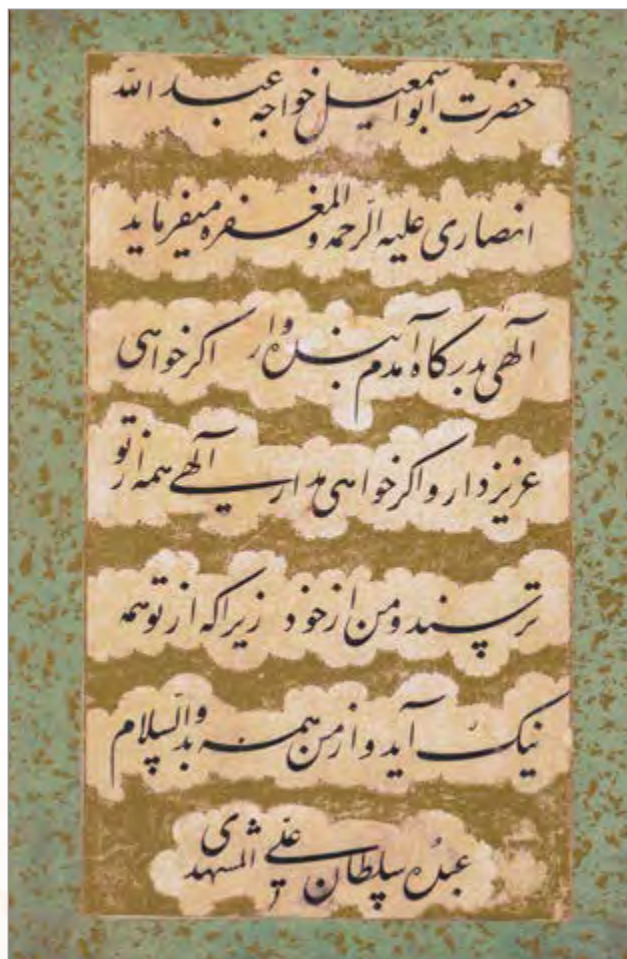 حضرت ابواسمعیل خواجه عبد الله
انصاری علیه الرّحمه والمغفره میفرماید
آلهی بدرکاه آمدم بنده وار اکر خواهی
عزیز دار و اکر خواهی مدار آلهی همه از تو
ترسند و من از خود زیرا که از تو همه
نیک آید و از من همه بد والسّلام
عبده سلطان علی المشهدی